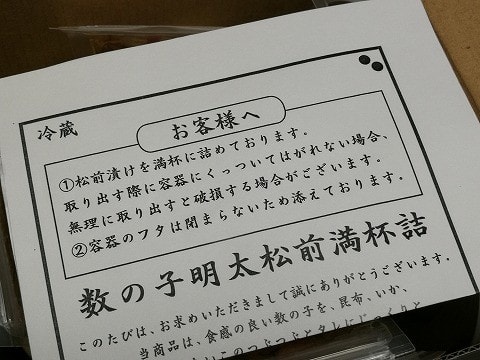 冷蔵
お客様へ
①松前漬けを満杯に詰めております。
取り出す際に容器にくっついてはがれない場合、
無理に取り出すと破損する場合がございます。
②容器のフタは閉まらないため添えております。
数の子明太松前満杯詰
このたびは、お求めいただきまして誠にありがとうございます。
当商品は、食感の良い数の子を、昆布、いか、